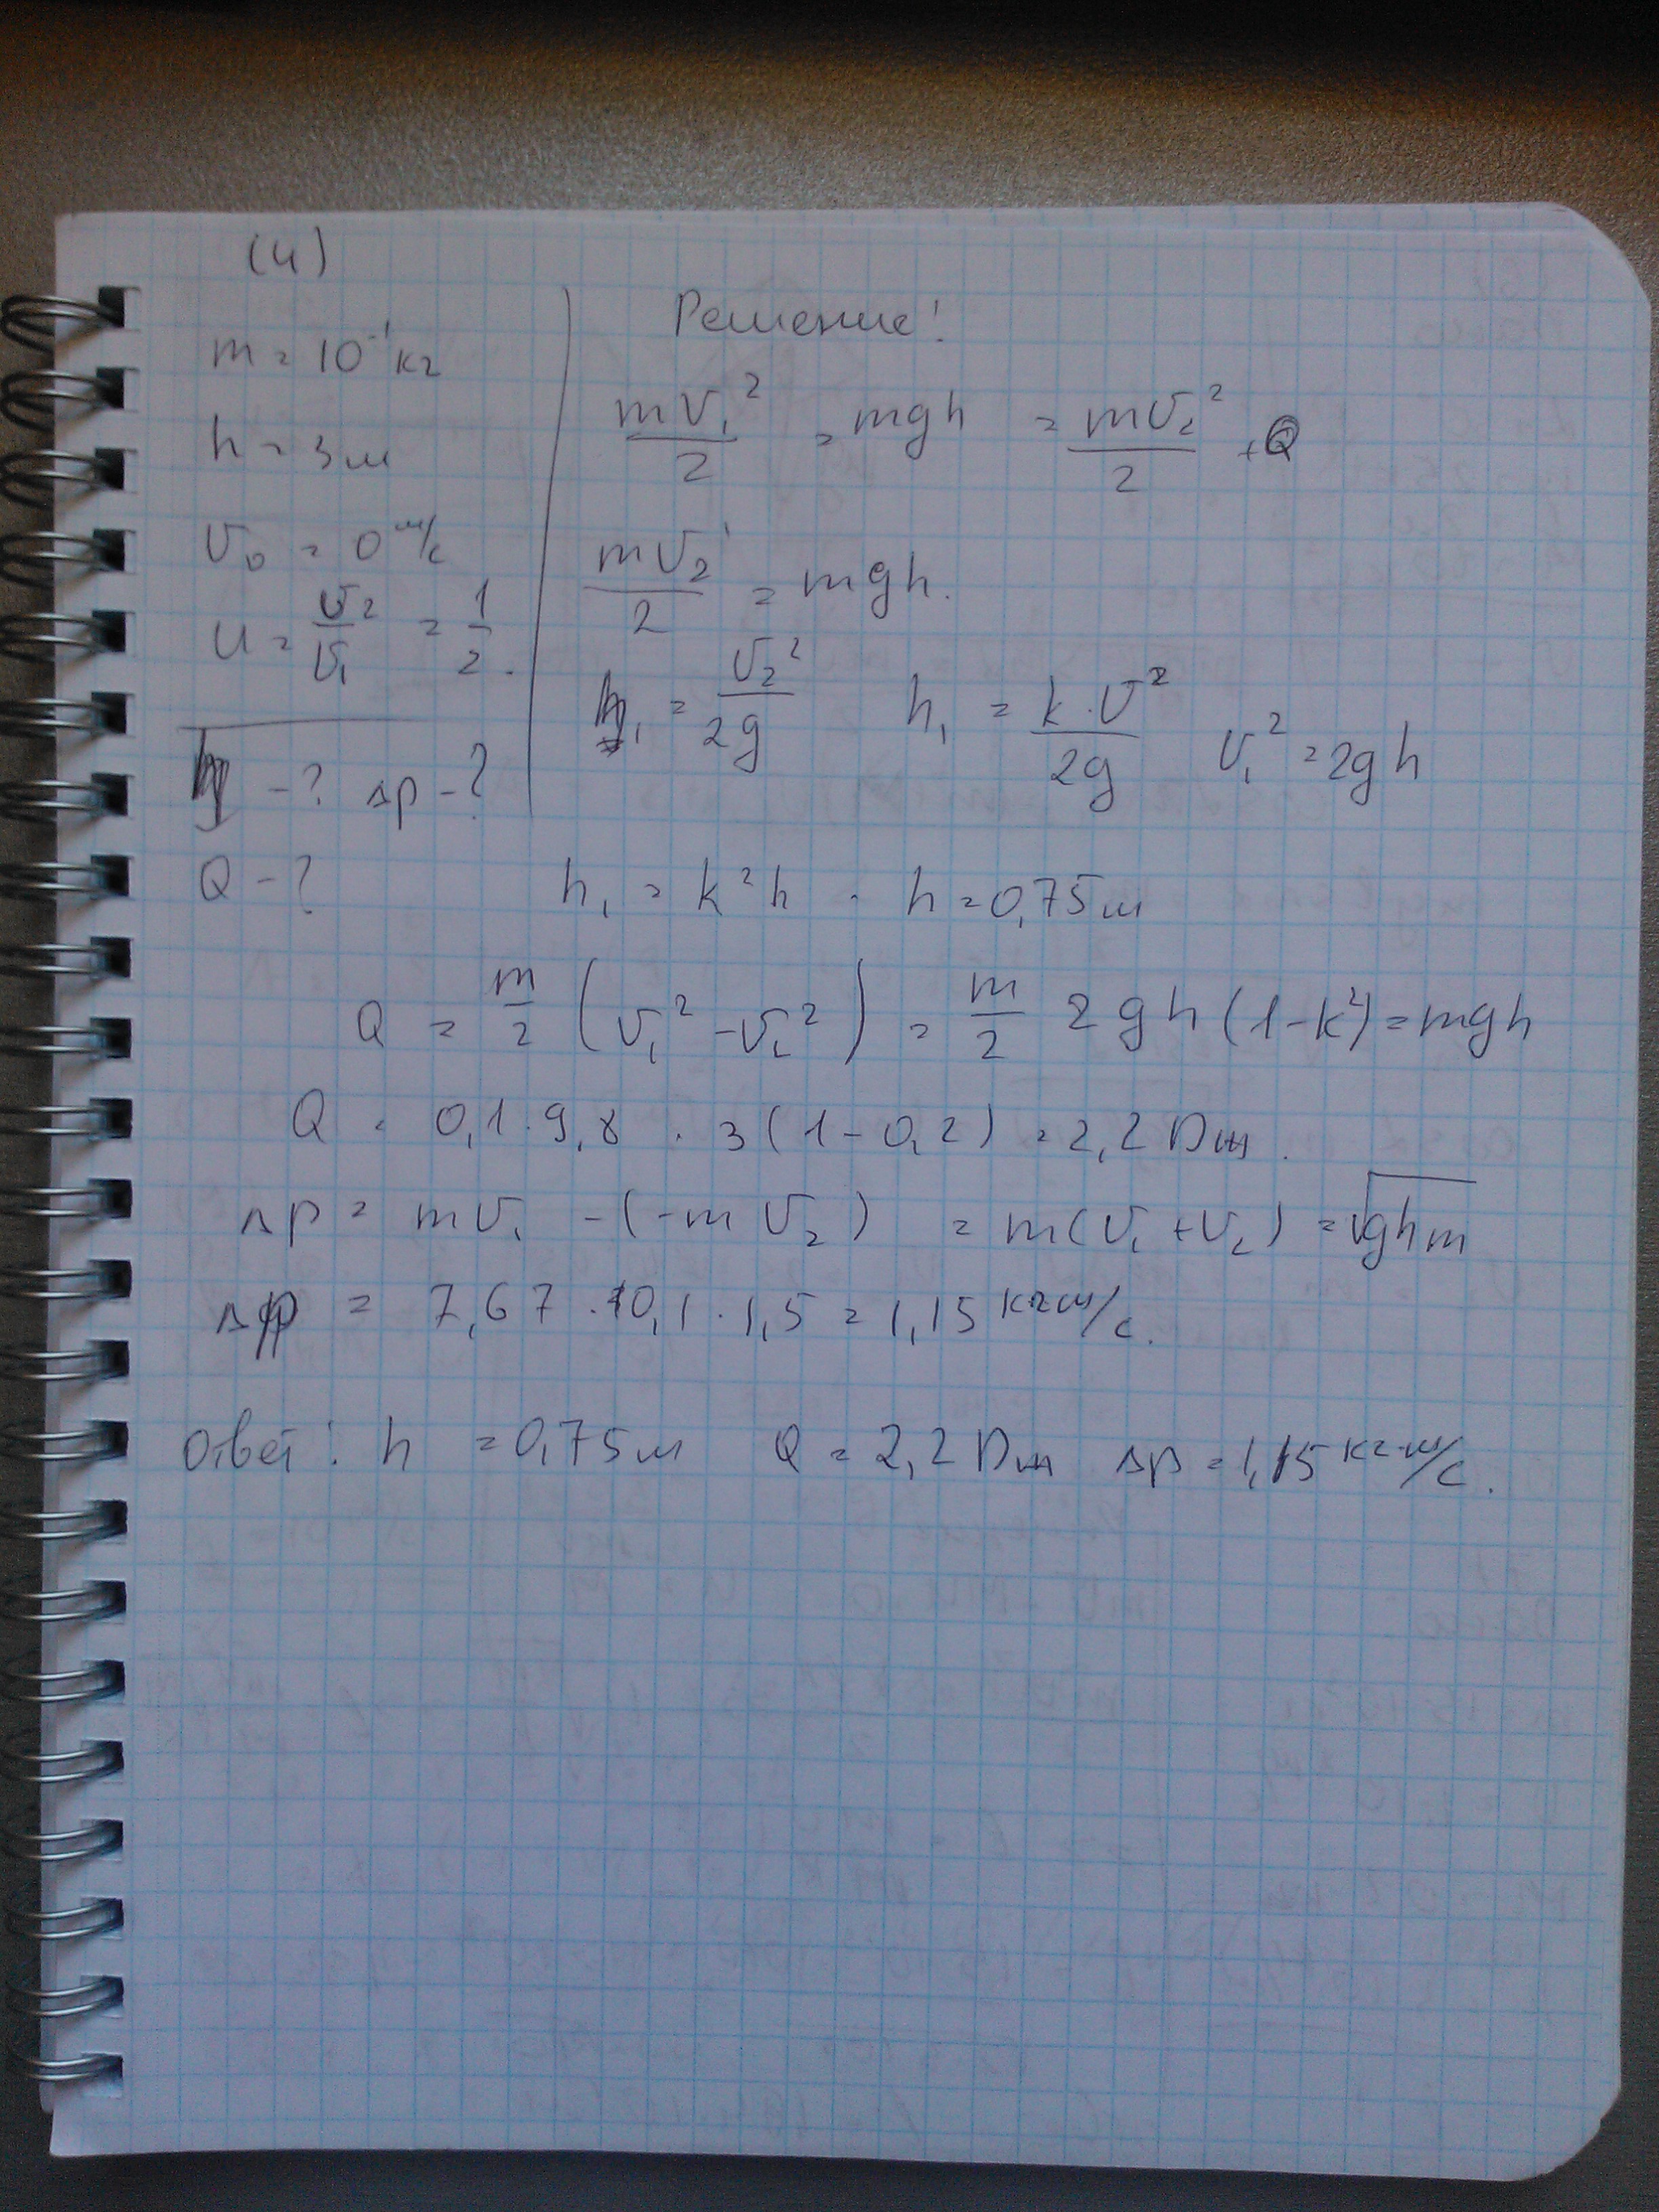 (4)
m = 10⁻¹ кг
h = 3 м
υ₀ = 0 м/с
u = υ₂/υ₁ = 1/2.
h - ? Δp - ?
Q - ?
Решение!
mυ₁²/2 = mgh = mυ₂²/2 + Q
mυ₂'/2 = mgh.
h₁ = υ₂²/2g h₁ = k·υ²/2g υ₁² = 2gh
h₁ = k²h · h = 0,75 м
Q = m/2 (υ₁² - υ₂²) = m/2 2gh(1-k²) = mgh
Q = 0,1·9,8 · 3(1-0,2) = 2,2 Дж.
Δp = mυ₁ -(-mυ₂) = m(υ₁+υ₂) = √ghm
Δp = 7,67·0,1·1,5 = 1,15 кгм/с.
Ответ: h = 0,75 м Q = 2,2 Дж Δp = 1,15 кг·м/с.